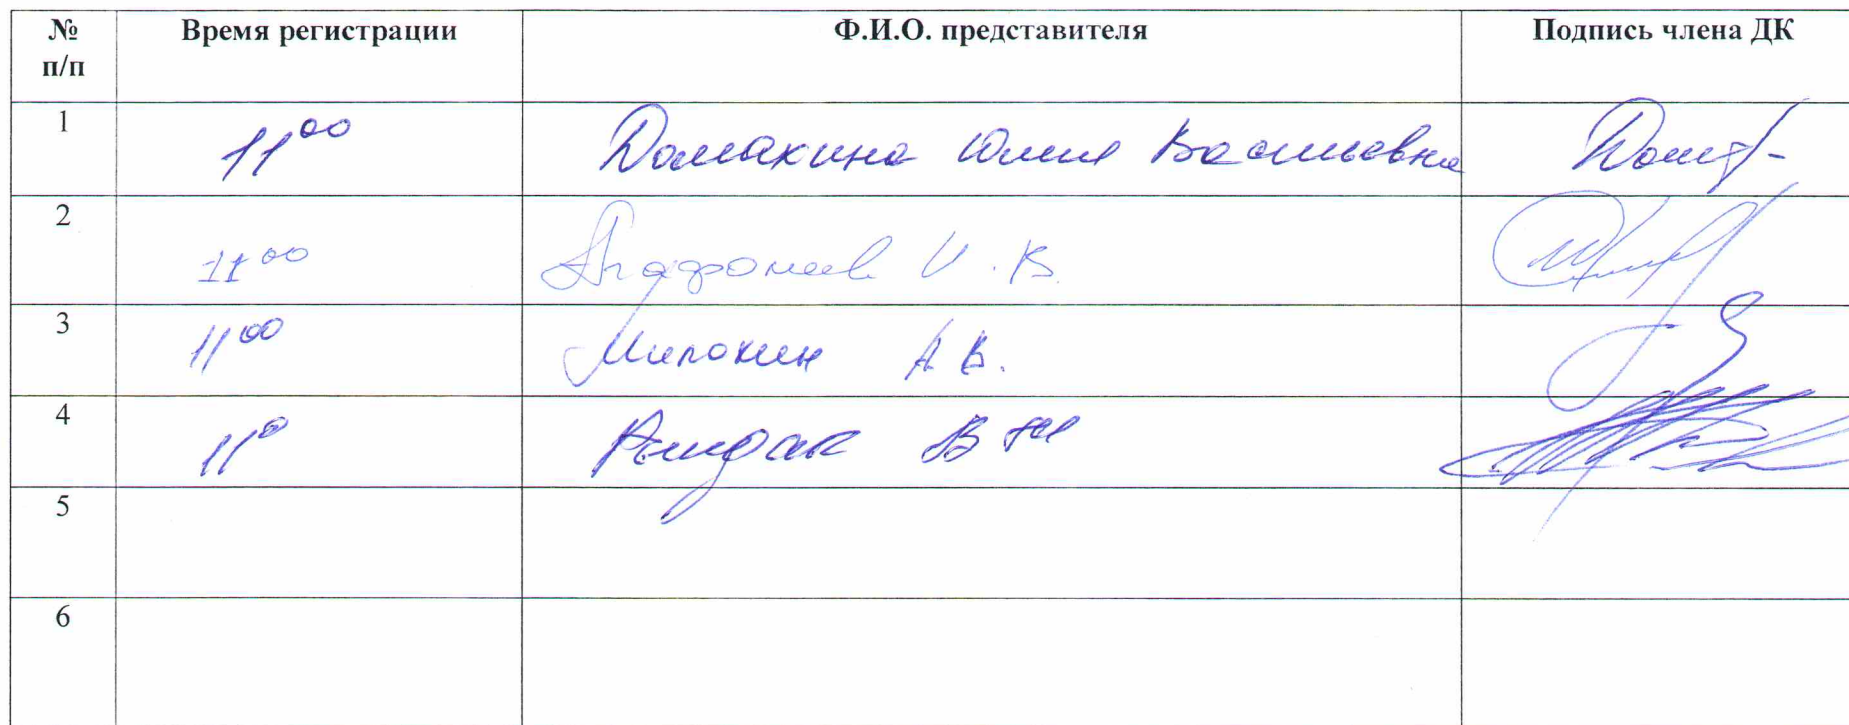 № Время регистрации Ф.И.О. представителя Подпись члена ДК
п/п
1 11⁰⁰ Домахина Юлия Васильевна
2 11⁰⁰ Агафонов И.В.
3 11⁰⁰ А.В.
4 11⁰
5
6